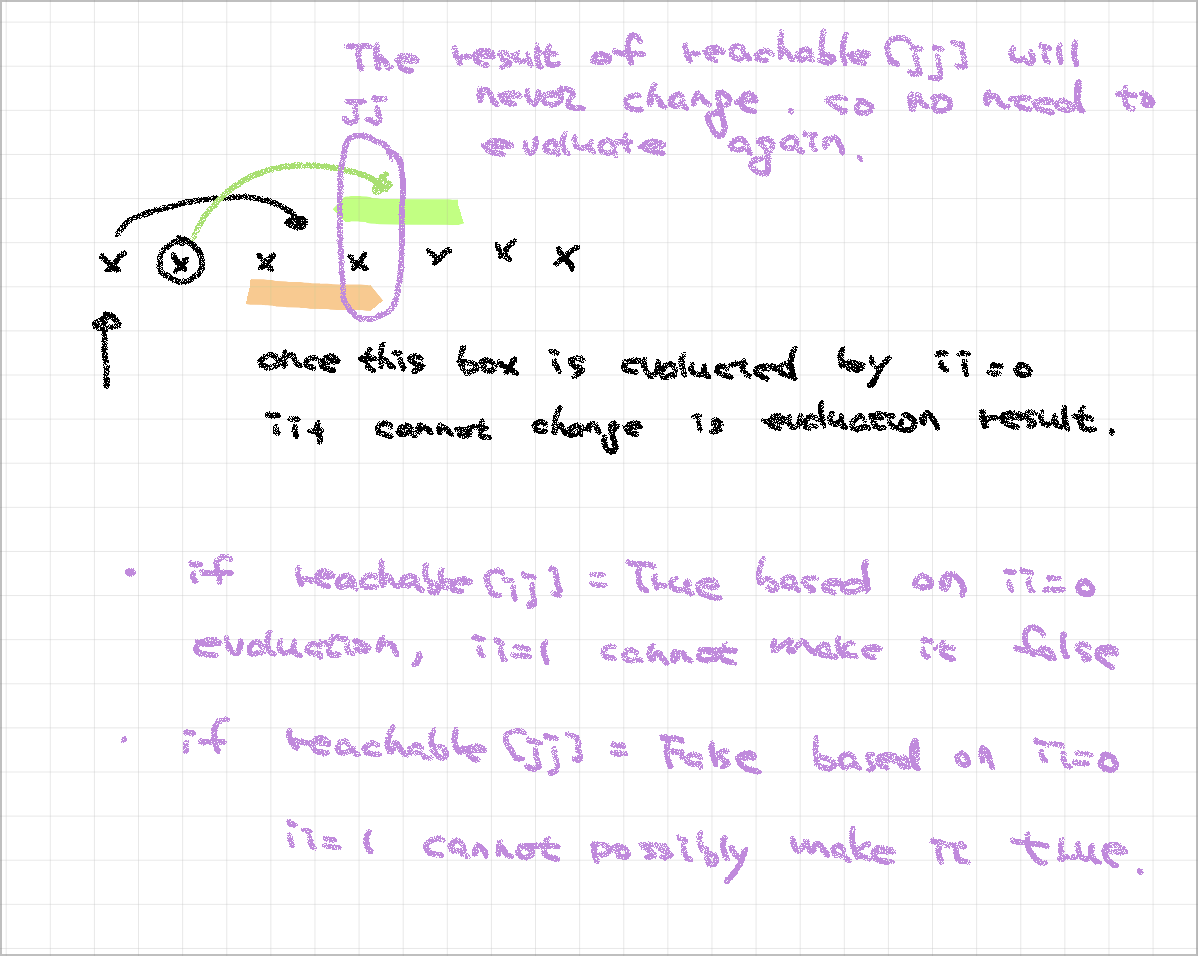 The result of reachable [jj] will
JJ never change. so no need to
evaluate again.
x x x x x x x
once this box is evaluated by ii=0
ii+ cannot change is evaluation result.
• if reachable [jj] = True based on ii=0
evaluation, ii=1 cannot make it false
• if reachable [jj] = False based on ii=0
ii=1 cannot possibly make it true.